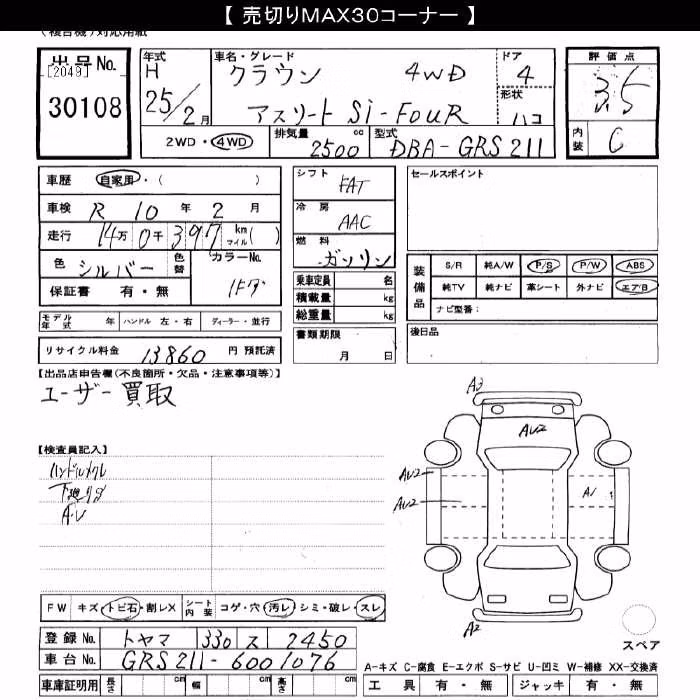 【 売切りMAX30コーナー 】
(複合機)対応用紙
出品No.
[2049]
30108
年式
H
25/2月
車名・グレード
クラウン 4WD
アスリート Si-FouR
ドア
4
形状
ハコ
評価点
3.5
内装
C
2WD・4WD
排気量 cc
2500
型式
DBA-GRS211
車歴 自家用・( )
車検 R 10年 2月
走行 14万 0千 397 km マイル( )
色 シルバー
色替
カラーNo.
1F7
保証書 有・無
モデル年式 年
ハンドル 左・右
ディーラー・並行
リサイクル料金 13860 円 預託済
シフト
FAT
冷房
AAC
燃料
ガソリン
乗車定員 名
積載量 kg
総重量 kg
書類期限
月 日
セールスポイント
装備品
S/R 純A/W P/S P/W ABS
純TV 純ナビ 革シート 外ナビ エアB
ナビ型番:
後日品
【出品店申告欄(不良箇所・欠品・注意事項等)】
ユーザー買取
【検査員記入】
ハンドルメクレ
下廻サビ
A・U
A3
AU2
AU2
AU2
A1
A2
スペア
FW キズ・トビ石・割レX
シート内装 コゲ・穴・汚レ・シミ・破レ・スレ
登録No. トヤマ 330 ス 2450
車台No. GRS211-6001076
車庫証明用 長さ cm 幅 cm 高さ cm
A-キズ C-腐食 E-エクボ S-サビ U-凹ミ W-補修 XX-交換済
工具 有・無 ジャッキ 有・無